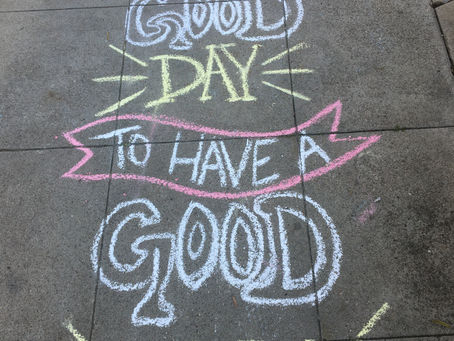 GOOD
DAY
TO HAVE A
GOOD